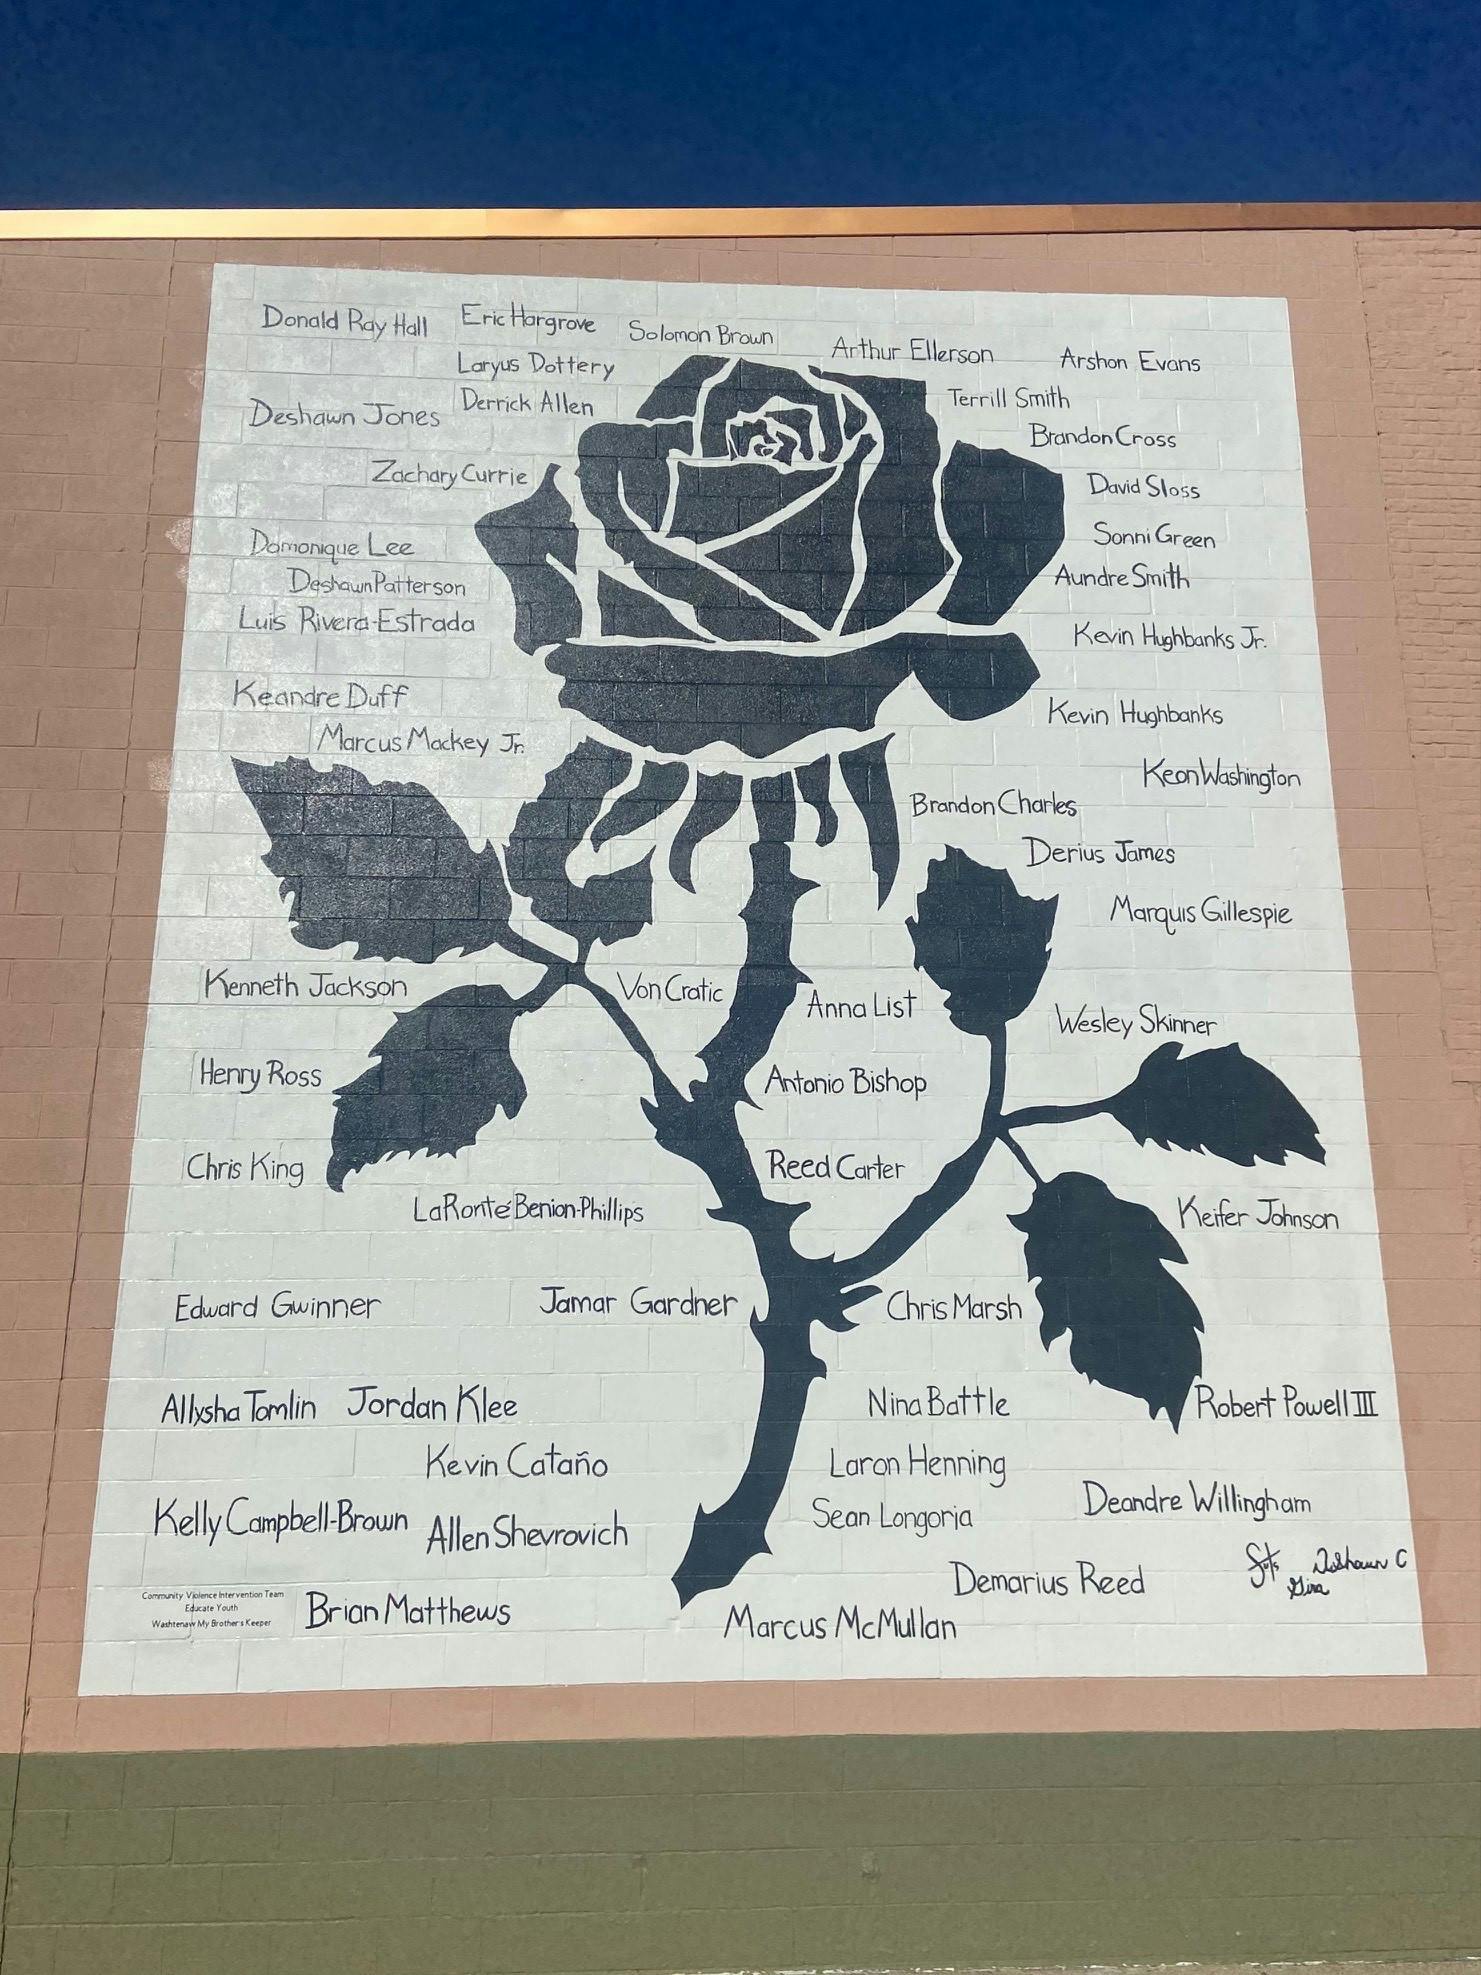 Donald Ray Hall
Eric Hargrove
Solomon Brown
Arthur Ellerson
Arshon Evans
Laryus Dottery
Terrill Smith
Deshawn Jones
Derrick Allen
Brandon Cross
Zachary Currie
David Sloss
Domonique Lee
Sonni Green
Deshawn Patterson
Aundre Smith
Luis Rivera-Estrada
Kevin Hughbanks Jr.
Keandre Duff
Kevin Hughbanks
Marcus Mackey Jr.
Keon Washington
Brandon Charles
Derius James
Marquis Gillespie
Kenneth Jackson
Von Cratic
Anna List
Wesley Skinner
Henry Ross
Antonio Bishop
Chris King
Reed Carter
LaRonté Benion-Phillips
Keifer Johnson
Edward Gwinner
Jamar Gardner
Chris Marsh
Allysha Tomlin
Jordan Klee
Nina Battle
Robert Powell III
Kevin Cataño
Laron Henning
Deandre Willingham
Kelly Campbell-Brown
Allen Shevrovich
Sean Longoria
Demarius Reed
Community Violence Intervention Team
Educate Youth
Washtenaw My Brother's Keeper
Brian Matthews
Marcus McMullan